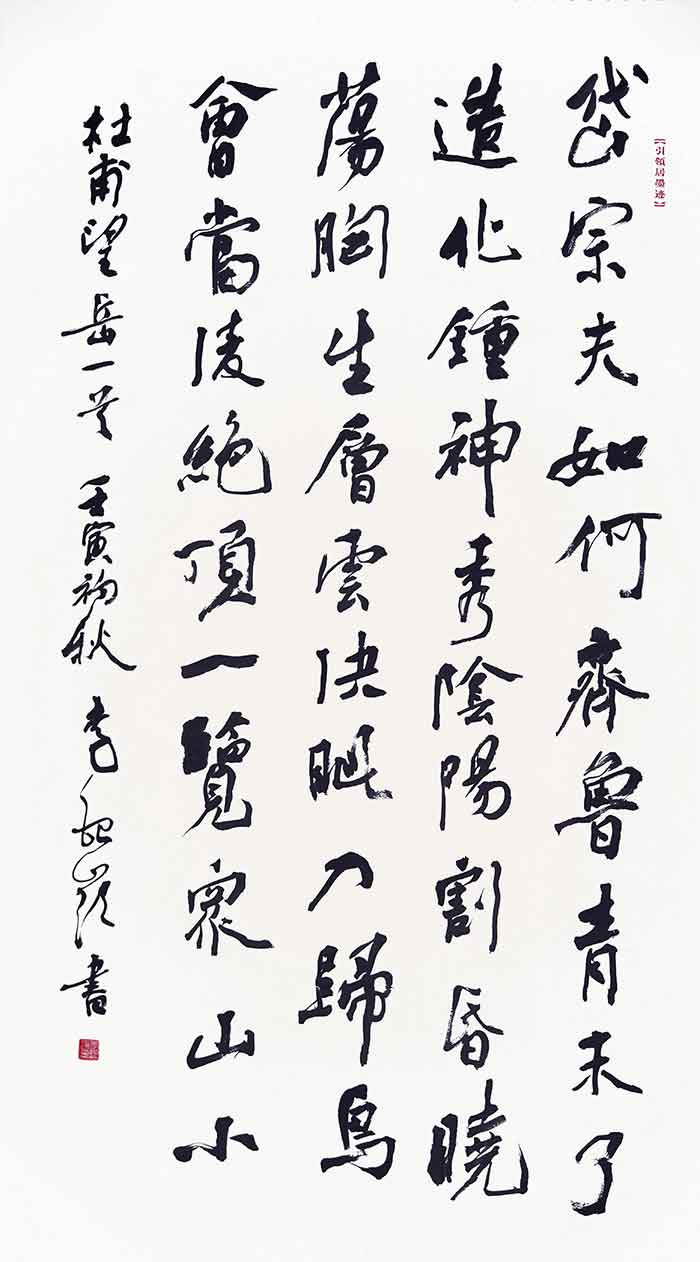 【引领居墨迹】
岱宗夫如何齊魯青未了
造化鍾神秀陰陽割昏曉
蕩胸生層雲決眦入歸鳥
會當凌絕頂一覽眾山小
杜甫望岳一首 壬寅初秋 李 書